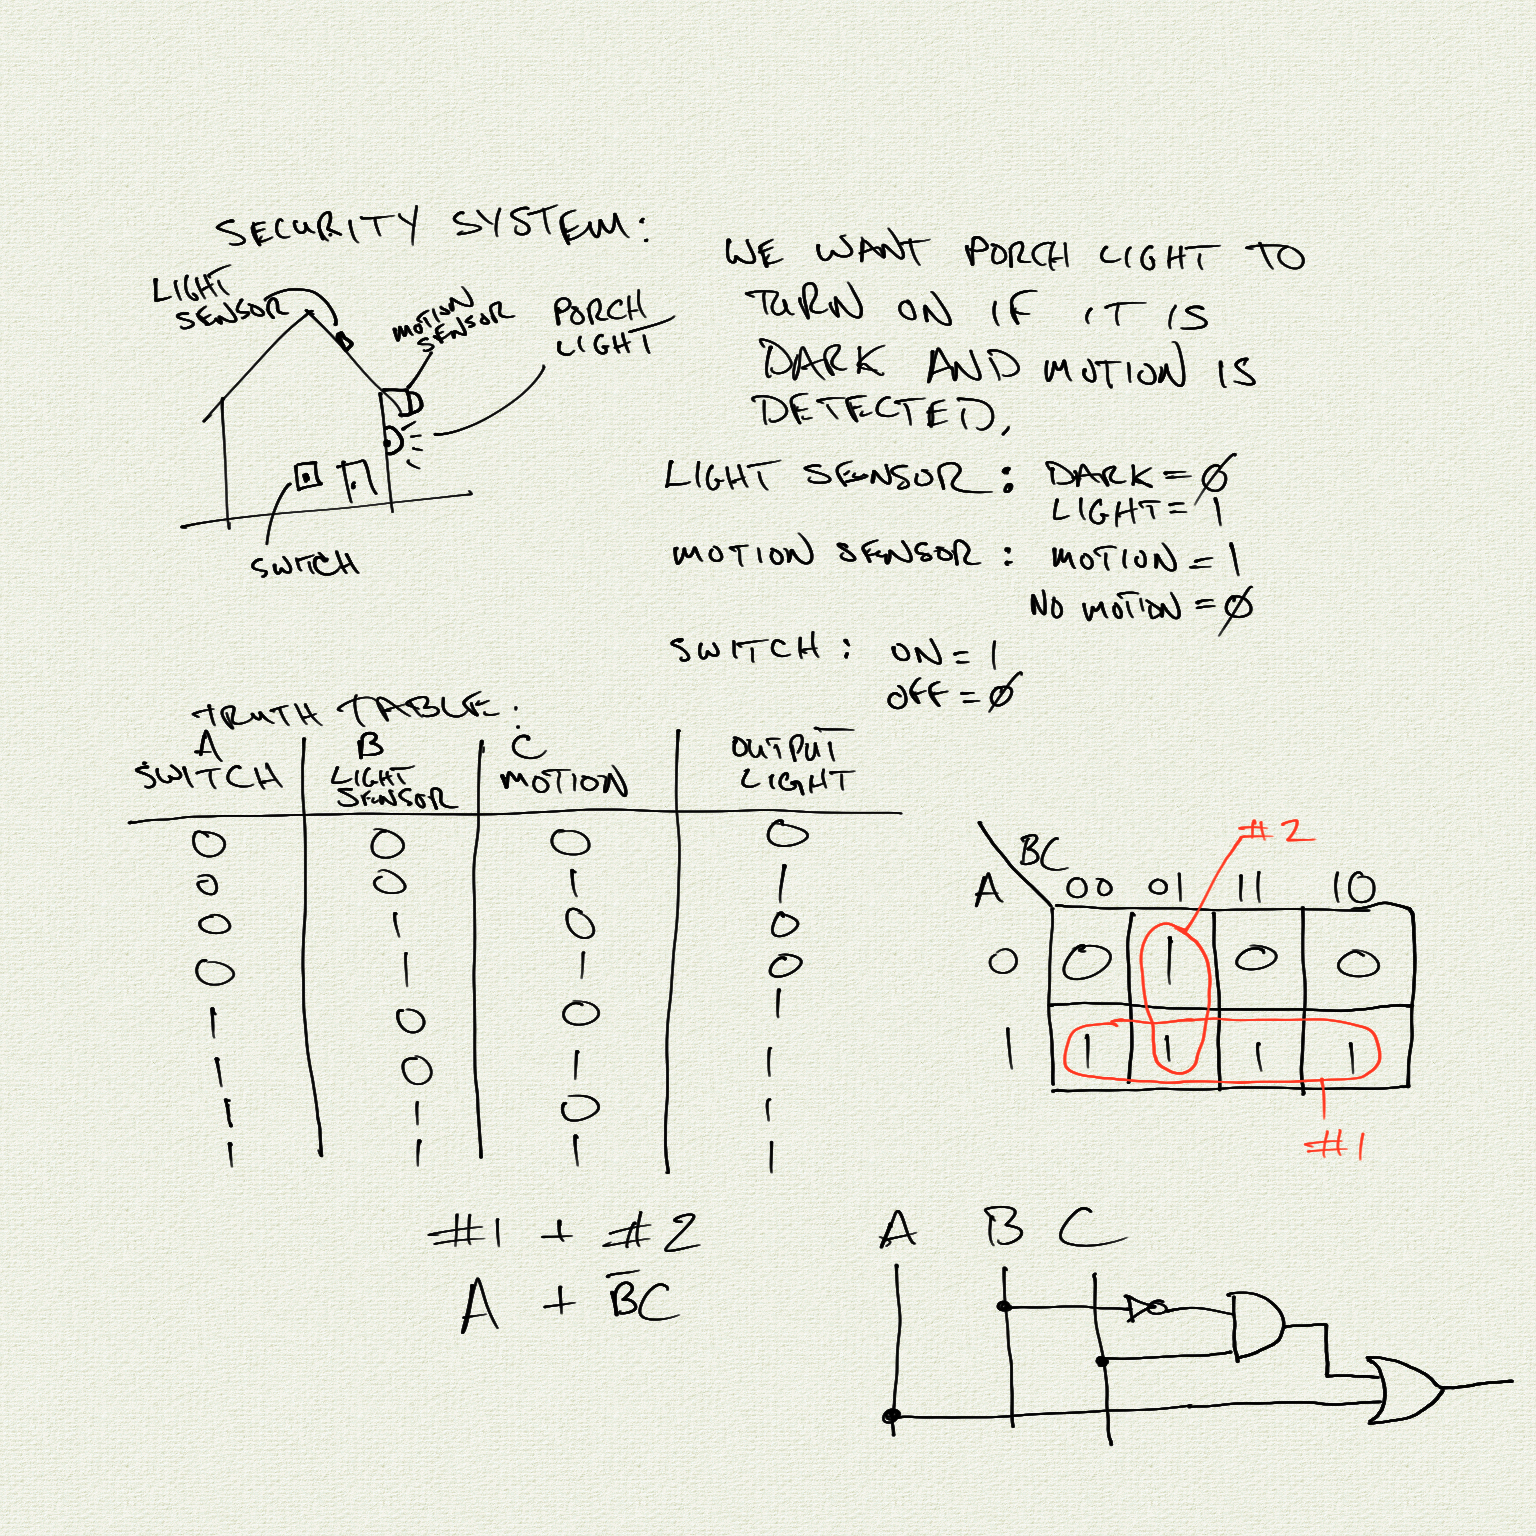 SECURITY SYSTEM:
LIGHT
SENSOR
MOTION
SENSOR
PORCH
LIGHT
SWITCH
WE WANT PORCH LIGHT TO
TURN ON IF IT IS
DARK AND MOTION IS
DETECTED.
LIGHT SENSOR: DARK = 0
LIGHT = 1
MOTION SENSOR: MOTION = 1
NO MOTION = 0
SWITCH: ON = 1
OFF = 0
TRUTH TABLE:
A B C OUTPUT
SWITCH LIGHT SENSOR MOTION LIGHT
0 0 0 0
0 0 1 1
0 1 0 0
0 1 1 0
1 0 0 1
1 0 1 1
1 1 0 1
1 1 1 1
#2
BC
A 00 01 11 10
0 0 1 0 0
1 1 1 1 1
#1
#1 + #2
A + B̅C
A B C